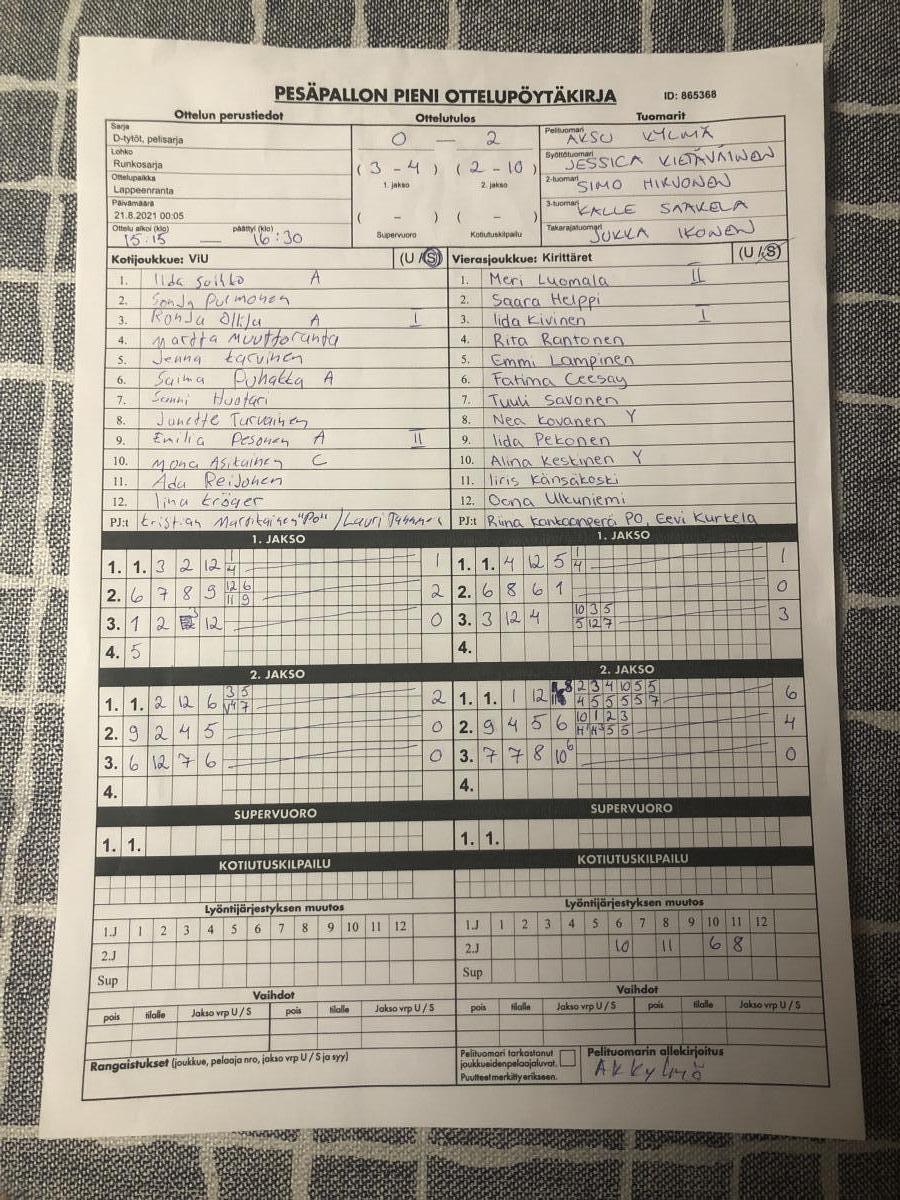 PESÄPALLON PIENI OTTELUPÖYTÄKIRJA ID: 865368
Ottelun perustiedot Ottelutulos Tuomarit
Sarja
D-tytöt, pelisarja
Lohko
Runkosarja
Ottelupaikka
Lappeenranta
Päivämäärä
21.8.2021 00:05
Ottelu alkoi (klo) päättyi (klo)
15:15 — 16:30
0 — 2
(3 - 4) (2 - 10)
1. jakso 2. jakso
( - ) ( - )
Supervuoro Kotiutuskilpailu
Pelituomari AKSU KYLMÄ
Syöttötuomari JESSICA KIETÄVÄINEN
2-tuomari SIMO HIRVONEN
3-tuomari KALLE SAAKELA
Takarajatuomari JUKKA IKONEN
Kotijoukkue: ViU (U / S)
1. Iida Suikko A
2. Sonja Pulmonen
3. Ronja Ollila A I
4. Martta Muuttoranta
5. Jenna Karvinen
6. Saima Puhakka A
7. Sanni Huotari
8. Janette Turvainen
9. Emilia Pesonen A II
10. Mona Asikainen C
11. Ada Reijonen
12. Iina Kröger
PJ:t Kristian "PO" / Lauri
Vierasjoukkue: Kirittäret (U / S)
1. Meri Luomala II
2. Saara Helppi
3. Iida Kivinen I
4. Rita Rantonen
5. Emmi Lampinen
6. Fatima Ceesay
7. Tuuli Savonen
8. Nea Kovanen Y
9. Iida Pekonen
10. Alina Keskinen Y
11. Iiris Känsäkoski
12. Oona Ulkuniemi
PJ:t Riina Kankaanperä PO, Eevi Kurkela
1. JAKSO 1. JAKSO
1. 1. 3 2 12 1 4 1
2. 6 7 8 9 12 6 11 9 2
3. 1 2 12 0
4. 5
1. 1. 4 12 5 1 4 1
2. 6 8 6 1 0
3. 3 12 4 10 3 5 5 12 7 3
4.
2. JAKSO 2. JAKSO
1. 1. 2 12 6 3 5 V4 7 2
2. 9 2 4 5 0
3. 6 12 7 6 0
4.
1. 1. 1 12 8 2 3 4 10 5 5 4 5 5 5 5 7 6
2. 9 4 5 6 10 1 2 3 5 5 4
3. 7 7 8 10 6 0
4.
SUPERVUORO SUPERVUORO
1. 1. 1. 1.
KOTIUTUSKILPAILU KOTIUTUSKILPAILU
Lyöntijärjestyksen muutos Lyöntijärjestyksen muutos
1.J 1 2 3 4 5 6 7 8 9 10 11 12 1.J 1 2 3 4 5 6 7 8 9 10 11 12
2.J 2.J 10 11 6 8
Sup Sup
Vaihdot Vaihdot
pois tilalle Jakso vrp U / S pois tilalle Jakso vrp U / S pois tilalle Jakso vrp U / S pois tilalle Jakso vrp U / S
Rangaistukset (joukkue, pelaaja nro, jakso vrp U / S ja syy)
Pelituomari tarkastanut
joukkueidenpelaajaluvat.
Puutteet merkitty erikseen.
Pelituomarin allekirjoitus
AKKylmä